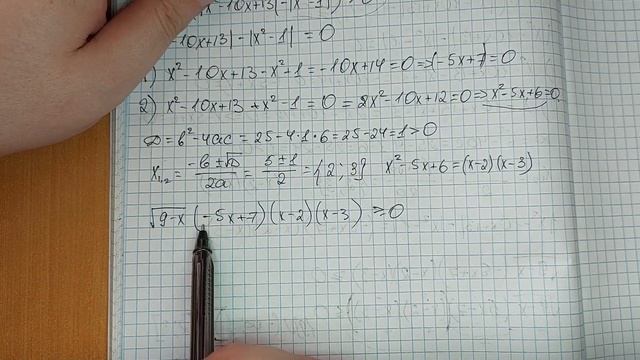 -10x+13|-|x²-1|
-10x+13|-|x²-1| = 0
1) x²-10x+13-x²+1=-10x+14=0=>(-5x+7)=0
2) x²-10x+13+x²-1=0=2x²-10x+12=0=>x²-5x+6=0
D=b²-4ac=25-4·1·6=25-24=1>0
x₁,₂=(-b±√D)/2a=(5±1)/2={2;3} x²-5x+6=(x-2)(x-3)
√9-x (-5x+7)(x-2)(x-3) ≥0